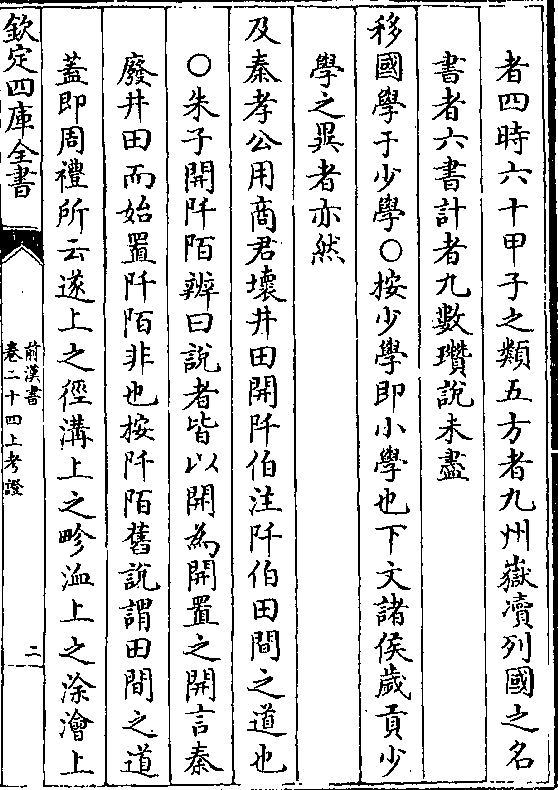 者四時六十甲子之類五方者九州嶽凟列國之名
書者六書計者九數瓚說未盡
移國學于少學○按少學即小學也下文諸侯歲貢少
學之異者亦然
及秦孝公用商君壞井田開阡伯注阡伯田間之道也
○朱子開阡陌辨曰說者皆以開為開置之開言秦
廢井田而始置阡陌非也按阡陌舊說謂田間之道
蓋即周禮所云遂上之徑溝上之畛洫上之涂澮上
欽定四庫全書
前漢書
卷二十四上考證
二